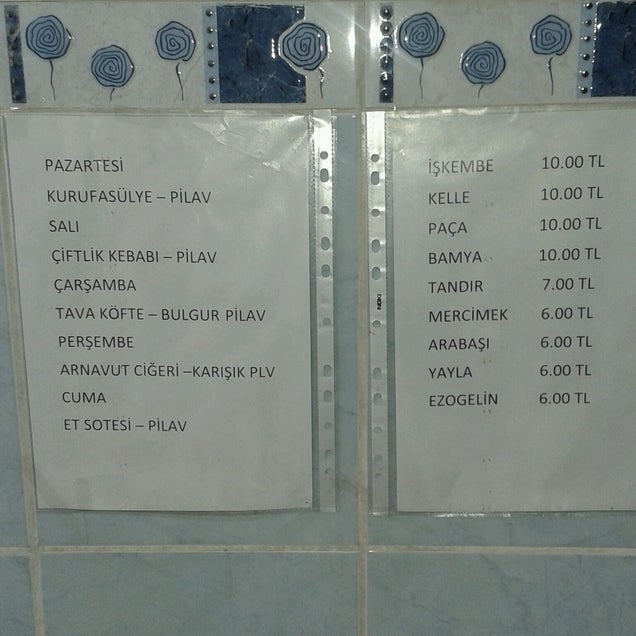 PAZARTESİ
KURUFASÜLYE – PİLAV
SALI
ÇİFTLİK KEBABI – PİLAV
ÇARŞAMBA
TAVA KÖFTE – BULGUR PİLAV
PERŞEMBE
ARNAVUT CİĞERİ –KARIŞIK PLV
CUMA
ET SOTESİ – PİLAV
İŞKEMBE 10.00 TL
KELLE 10.00 TL
PAÇA 10.00 TL
BAMYA 10.00 TL
TANDIR 7.00 TL
MERCİMEK 6.00 TL
ARABAŞI 6.00 TL
YAYLA 6.00 TL
EZOGELİN 6.00 TL